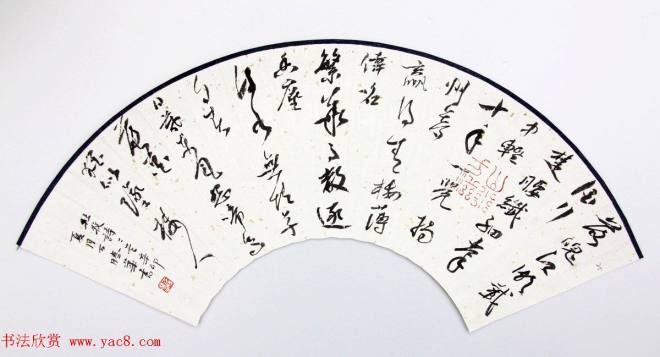 落魄江湖載
酒行
楚腰纖細掌
中輕
十年一覺揚
州夢
贏得青樓薄
倖名
繁華事散逐
香塵
流水無情草
自春
日暮東風怨啼鳥
落花
猶似墜樓人
杜牧詩二首辛卯
夏月
书法欣赏 www.yac8.com